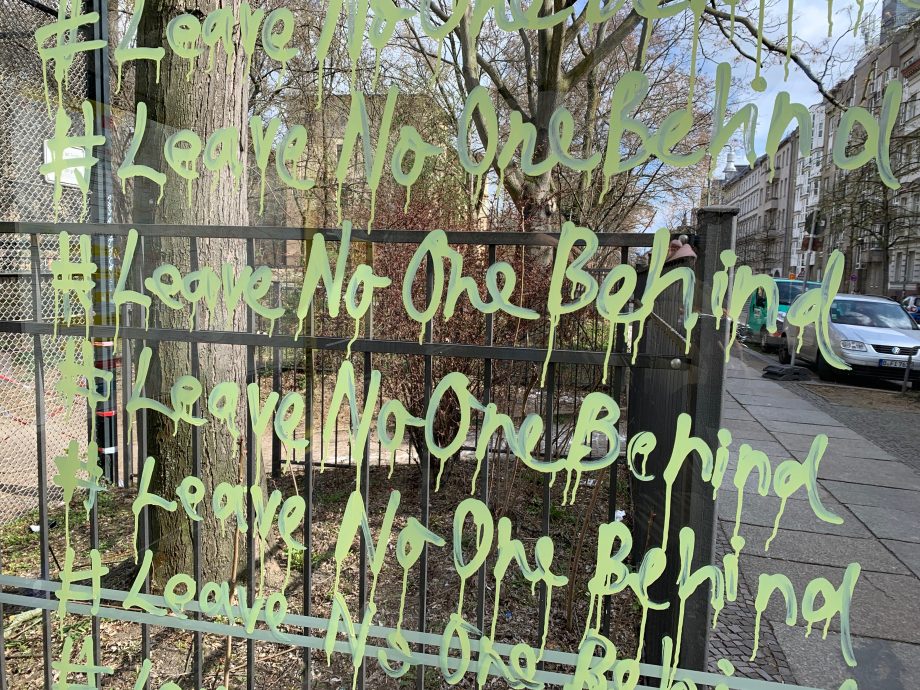 # Leave No One Behind
# Leave No One Behind
# Leave No One Behind
# Leave No One Behind
# Leave No One Behind
# Leave No One Behind